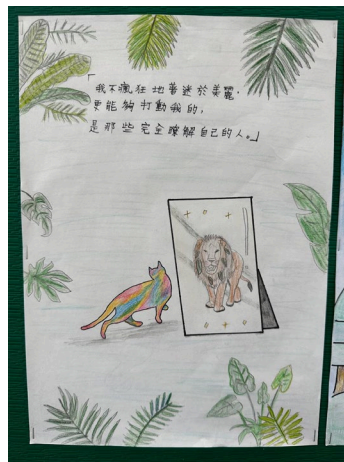 「我不瘋狂地著迷於美麗,
要能夠打動我的,
是那些完全瞭解自己的人。」